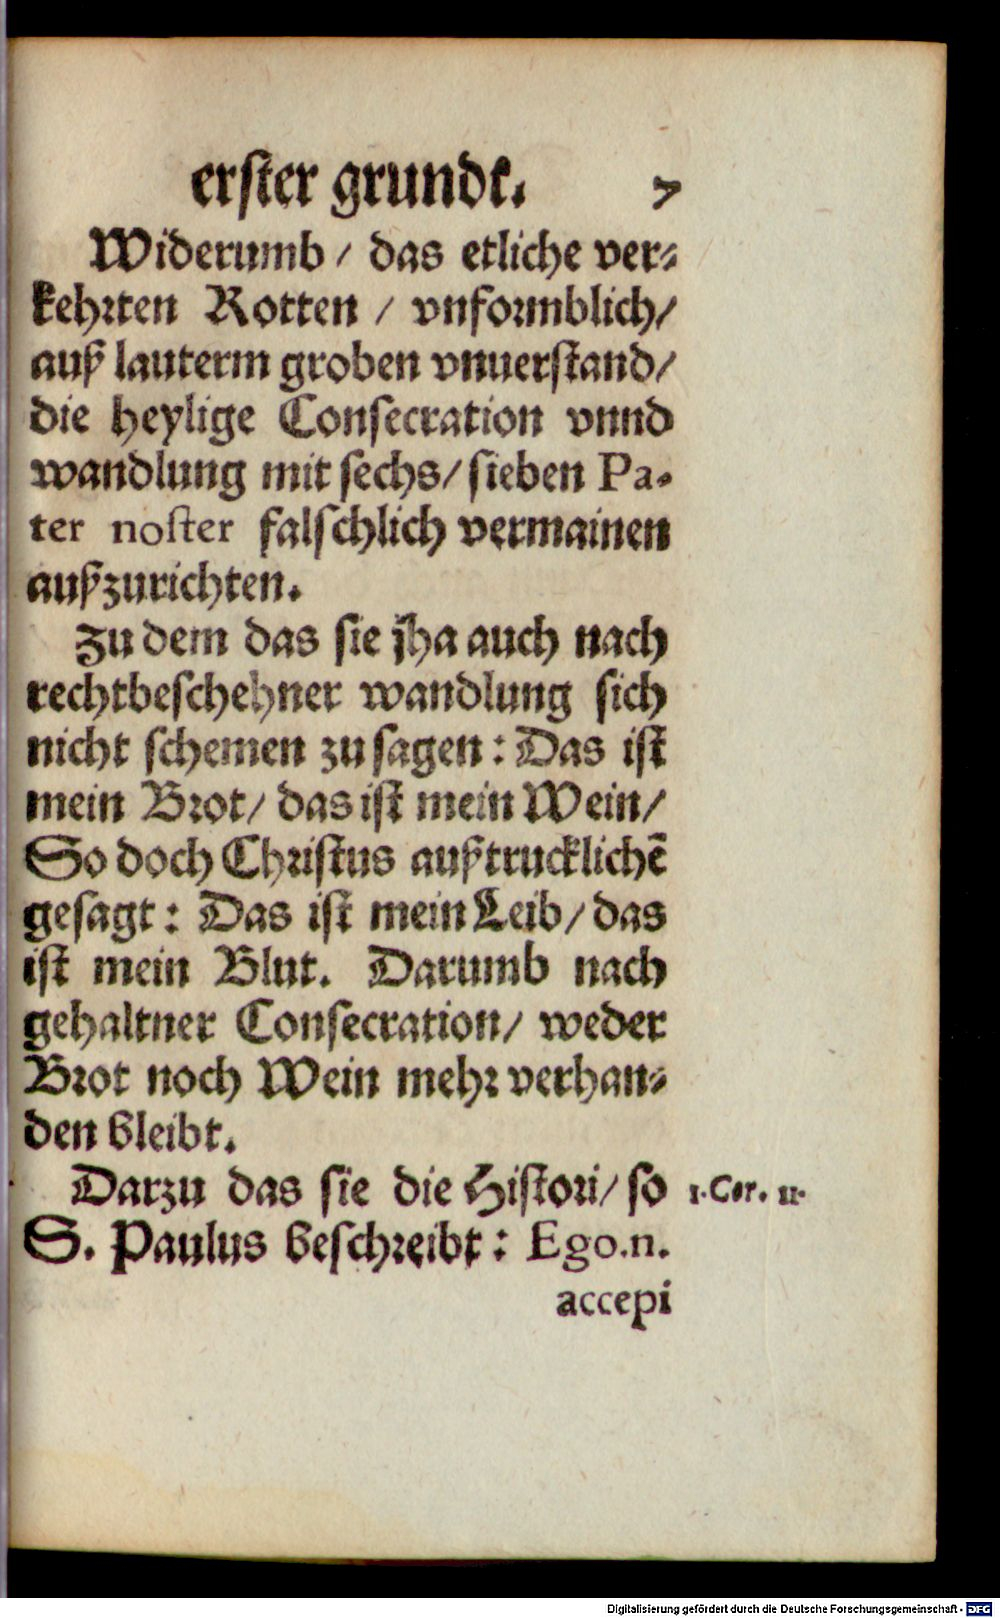 erster grundt. 7
Widerumb / das etliche ver⸗
kehrten Rotten / vnformblich/
auß lauterm groben vnuerstand/
die heylige Consecration vnnd
wandlung mit sechs/ sieben Pa-
ter noster falschlich vermainen
außzurichten.
Zu dem das sie jha auch nach
rechtbeschehner wandlung sich
nicht schemen zu sagen: Das ist
mein Brot/ das ist mein Wein/
So doch Christus außtrucklichẽ
gesagt: Das ist mein Leib/ das
ist mein Blut. Darumb nach
gehaltner Consecration/ weder
Brot noch Wein mehr verhan⸗
den bleibt.
Darzu das sie die Histori/ so 1. Cor. 11.
S. Paulus beschreibt: Ego.n.
accepi
Digitalisierung gefördert durch die Deutsche Forschungsgemeinschaft - DFG